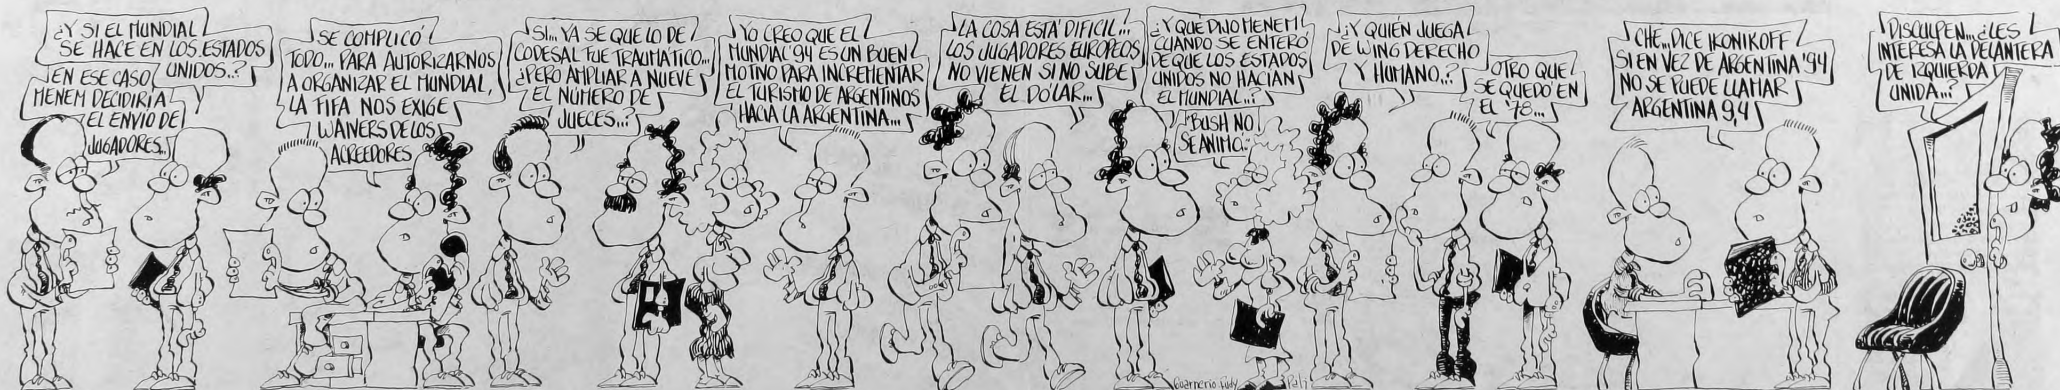 ¿Y SI EL MUNDIAL
SE HACE EN LOS ESTADOS
UNIDOS..?
¡EN ESE CASO
MENEM DECIDIRÍA
EL ENVIO DE
JUGADORES..!
SE COMPLICÓ
TODO... PARA AUTORIZARNOS
A ORGANIZAR EL MUNDIAL,
LA FIFA NOS EXIGE
WAIVERS DE LOS
ACREEDORES
SI... YA SE QUE LO DE
CODESAL FUE TRAUMÁTICO...
¿PERO AMPLIAR A NUEVE
EL NÚMERO DE
JUECES..?
YO CREO QUE EL
MUNDIAL '94 ES UN BUEN
MOTIVO PARA INCREMENTAR
EL TURISMO DE ARGENTINOS
HACIA LA ARGENTINA...
LA COSA ESTÁ DIFICIL...
LOS JUGADORES EUROPEOS
NO VIENEN SI NO SUBE
EL DÓLAR...
¿Y QUE DIJO MENEM
CUANDO SE ENTERÓ
DE QUE LOS ESTADOS
UNIDOS NO HACIAN
EL MUNDIAL...?
'BUSH NO
SE ANIMO'
¿Y QUIÉN JUEGA
DE WING DERECHO
Y HUMANO..?
OTRO QUE
SE QUEDÓ EN
EL '78...
CHE... DICE IKONIKOFF
SI EN VEZ DE ARGENTINA '94
NO SE PUEDE LLAMAR
ARGENTINA 9,4
DISCULPEN... ¿LES
INTERESA LA DELANTERA
DE IZQUIERDA
UNIDA..?
Guarnerio. Rudy
Pati